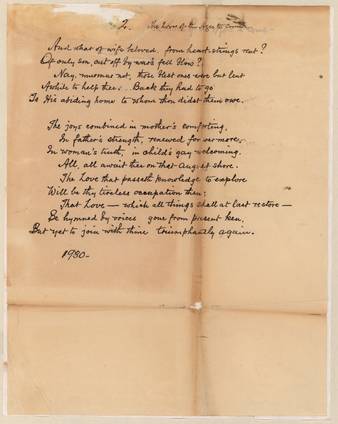 2. The
And what of wife beloved, from heart-strings rent?
Of only son, cut off by war's fell blow?
Nay, murmur not, those blest ones were but lent
Awhile to help thee... Back they had to go
To His abiding home to whom thou didst them owe.
The joys combined in mother's comforting,
In father's strength, renewed for evermore,
In woman's truth, in child's gay welcoming.
All, all await thee on that august shore.
The Love that passeth knowledge to explore
Will be thy tireless occupation then;
That Love — which all things shall at last restore —
Be hymned by voices gone from present ken,
But yet to join with thine triumphantly again.
1930-